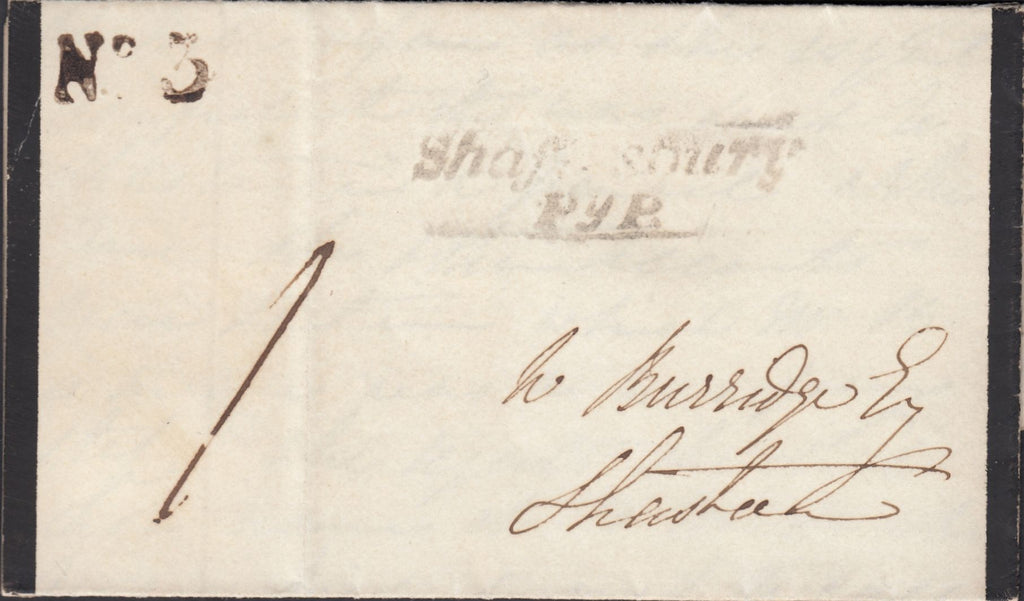 No 3
Shaftesbury
Py P.
1
W Burridge Esq
Shaston